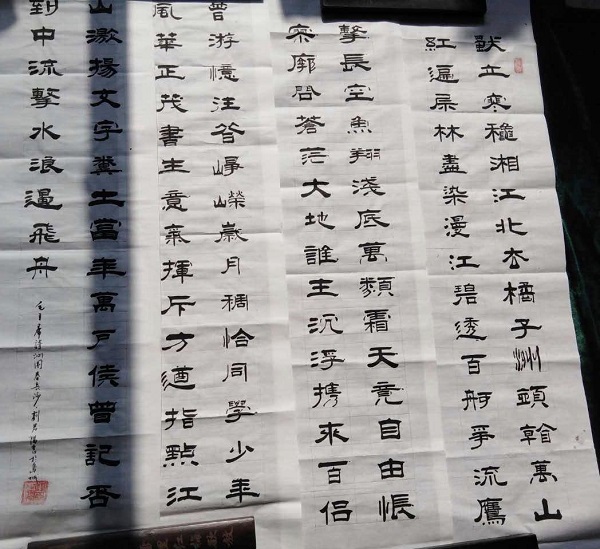 獨立寒穐湘江北去橘子洲頭看萬山
紅遍层林盡染漫江碧透百舸爭流鷹
擊長空魚翔淺底萬類霜天竞自由悵
寥廓問蒼茫大地誰主沉浮攜來百侶
曾游憶往昔崢嶸歲月稠恰同學少年
風華正茂書生意氣揮斥方遒指點江
山激揚文字糞土當年萬戶侯曾記否
到中流擊水浪遏飛舟
毛主席詩沁園春長沙